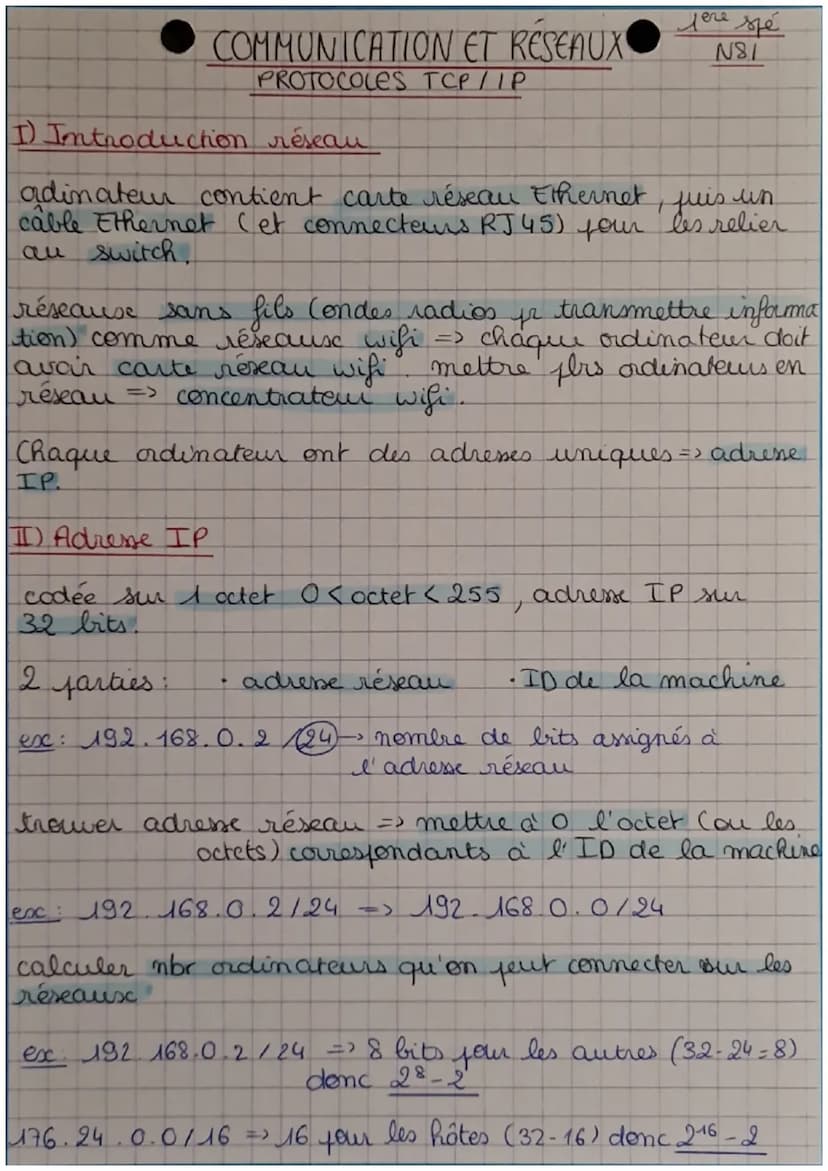 1ère spé
COMMUNICATION ET RÉSEAUX
NSI
PROTOCOLES TCP/IP
I) Introduction réseau
ordinateur contient carte réseau Ethernet, puis un
câble Ethernet (et connecteurs RJ45) pour les relier
au switch.
réseaux sans fils (ondes radios pr transmettre informa
tion) comme réseaux wifi => chaque ordinateur doit
avoir carte réseau wifi. mettre plrs ordinateurs en
réseau => concentrateur wifi.
Chaque ordinateur ont des adresses uniques => adresse
IP.
II) Adresse IP
codée sur 1 octet 0 < octet < 255, adresse IP sur
32 bits.
2 parties : • adresse réseau • ID de la machine
ex : 192.168.0.2 /24 → nombre de bits assignés à
l'adresse réseau
trouver adresse réseau => mettre à 0 l'octet (ou les
octets) correspondants à l'ID de la machine
ex : 192.168.0.2/24 => 192.168.0.0/24
calculer nbr ordinateurs qu'on peut connecter sur les
réseaux
ex : 192.168.0.2/24 => 8 bits pour les autres (32-24=8)
donc 2⁸-2
176.24.0.0/16 => 16 pour les hôtes (32-16) donc 2¹⁶-2